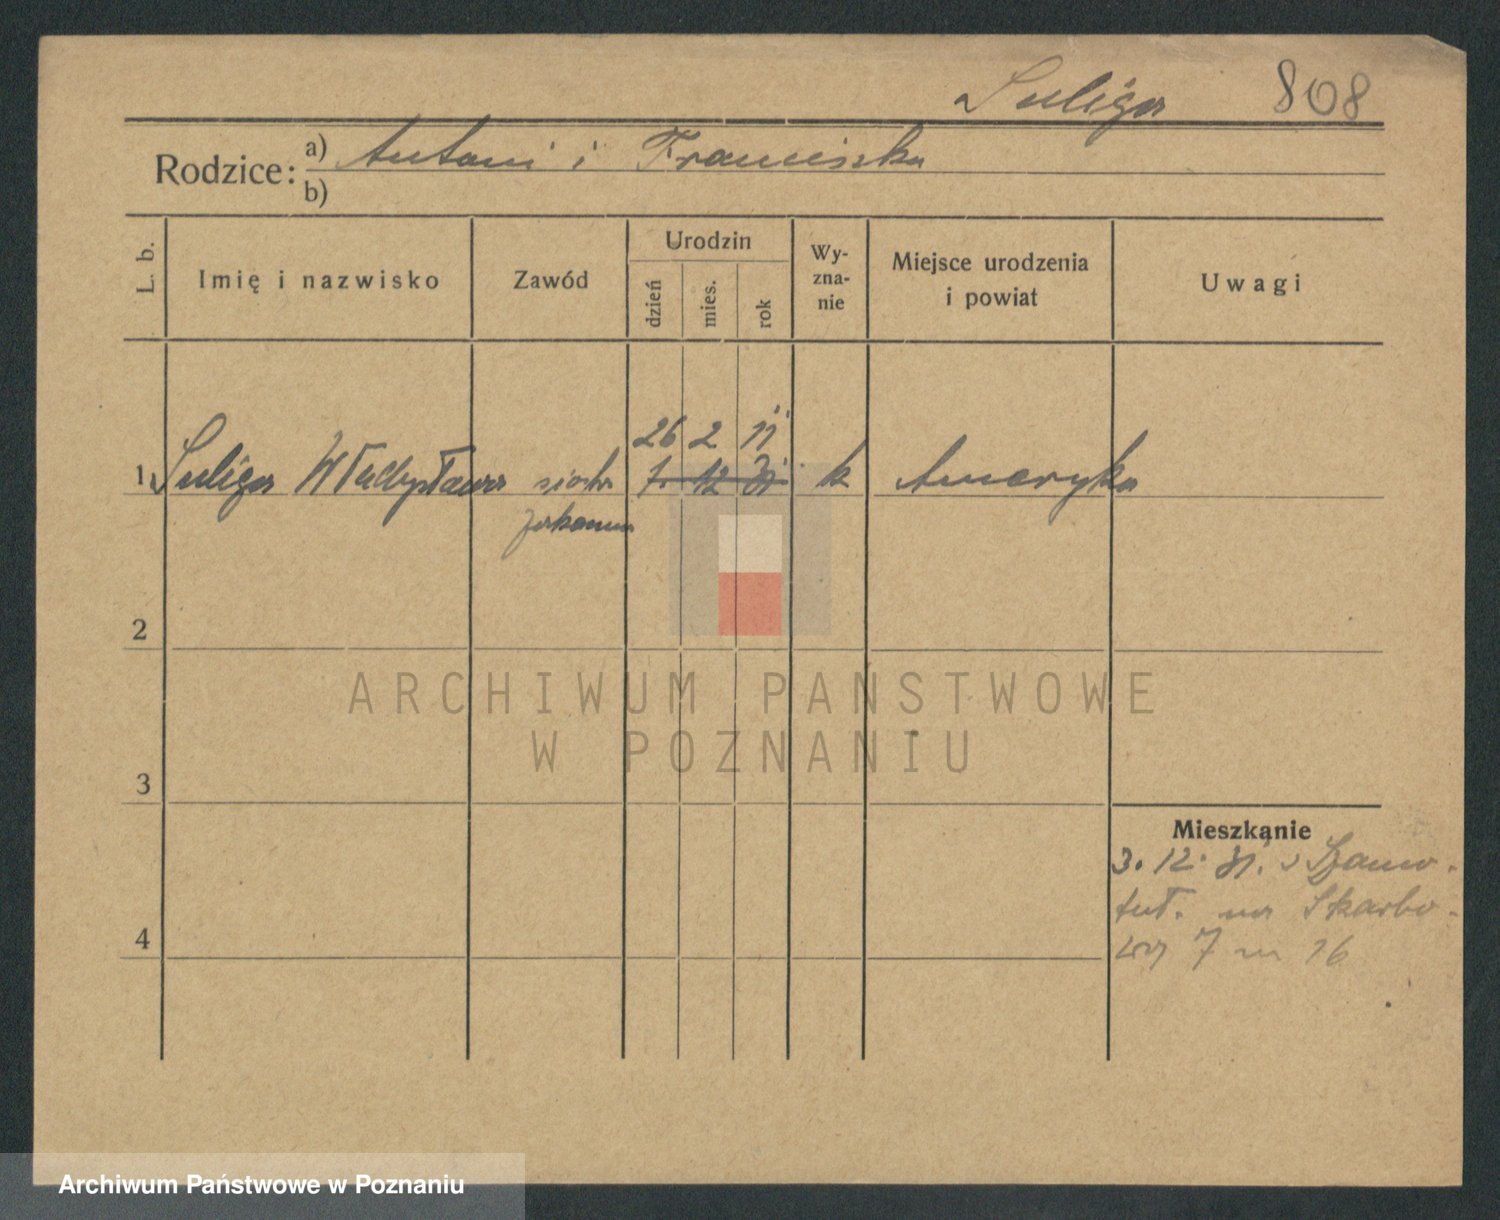 Suliga 808
Rodzice: a) Antoni i Franciszka
b)
L. b.
Imię i nazwisko
Zawód
Urodzin
dzień
mies.
rok
Wy-
zna-
nie
Miejsce urodzenia
i powiat
Uwagi
26 2 11
1 Suliga Władysława siostra 1. 12 31. k Ameryka
zakonna
2
3
4
Mieszkanie
3. 12. 31. Szamo-
tuł. na Skarbo-
wą 7 m 16
ARCHIWUM PAŃSTWOWE
W POZNANIU
Archiwum Państwowe w Poznaniu